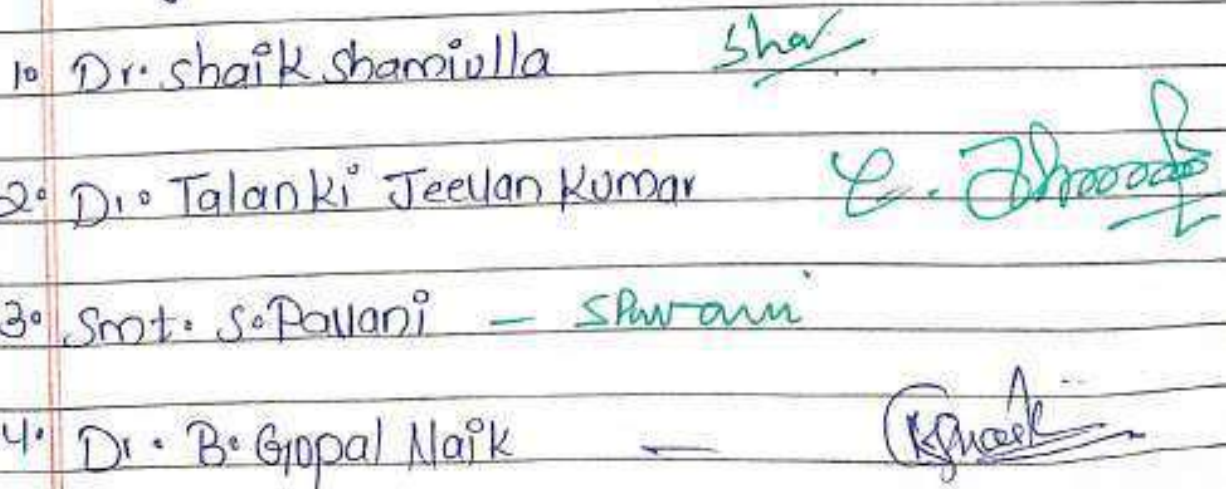 1. Dr. Shaik Shamiulla Sha
2. Dr. Talanki Jeevan Kumar
3. Smt. S. Pavani – SPavani
4. Dr. B. Gopal Naik –